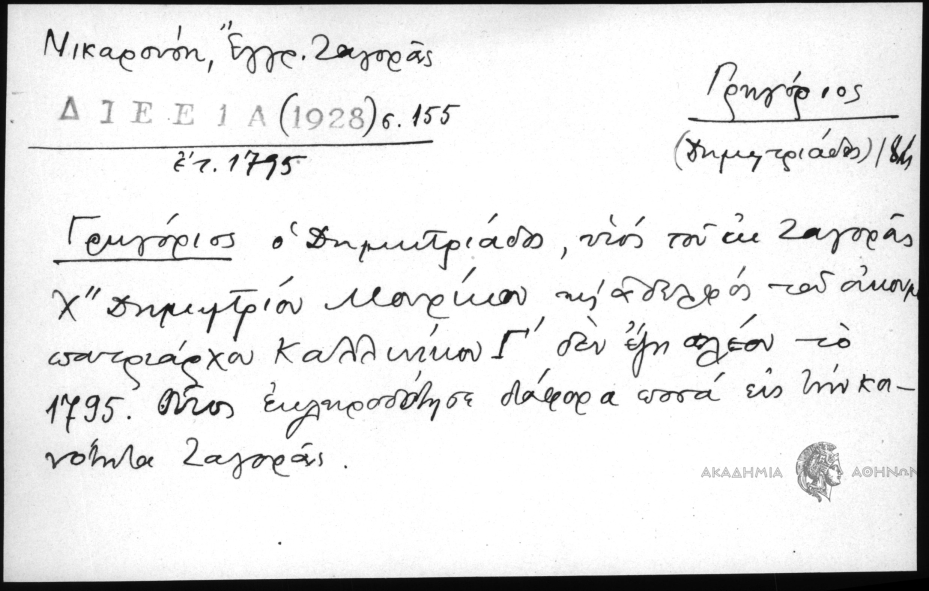 Νικαρούση, Ἔγγρ. Ζαγορᾶς
Δ Ι Ε Ε 1 Α (1928) σ. 155
ἔτ. 1795
Γρηγόριος
(Δημητριάδος)
Γρηγόριος ὁ Δημητριάδος, υἱός τοῦ ἐκ Ζαγορᾶς
Χ" Δημητρίου Μαυρίκου καὶ ἀδελφός τοῦ οἰκουμ
πατριάρχου Καλλινίκου Γ' δὲν ἔζη πλέον τὸ
1795. Οὗτος ἐκληροδότησε διάφορα ποσά εἰς τὴν κα-
νότητα Ζαγορᾶς.
ΑΚΑΔΗΜΙΑ ΑΘΗΝΩΝ